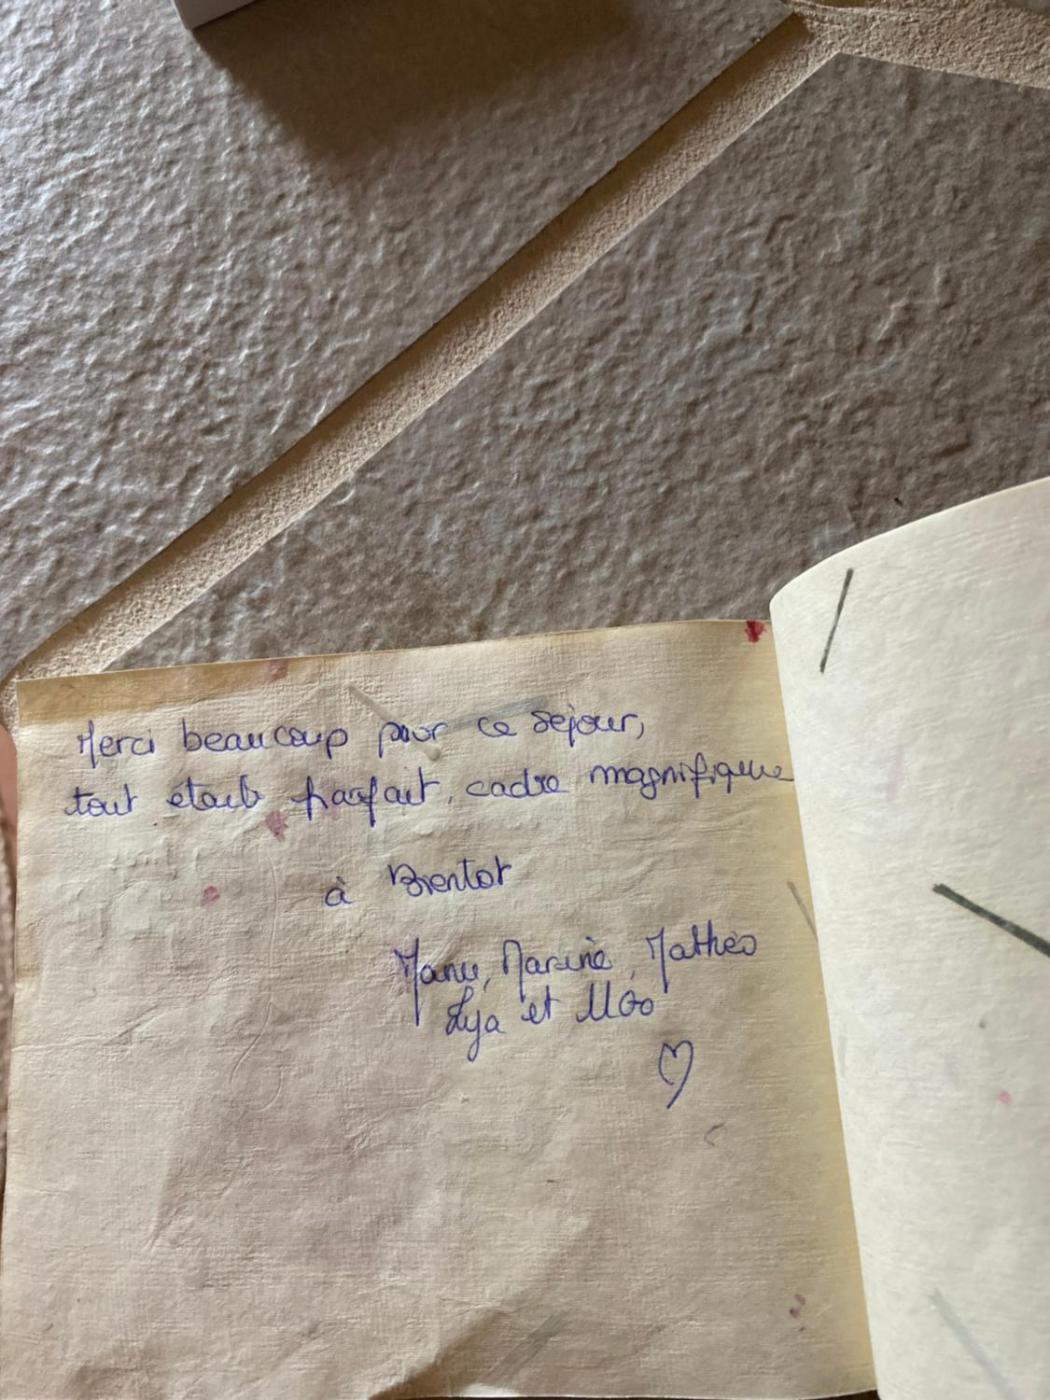 Merci beaucoup pour ce séjour,
tout était parfait, cadre magnifique
à Bientot
Manu, Marine, Mathéo
Lya et